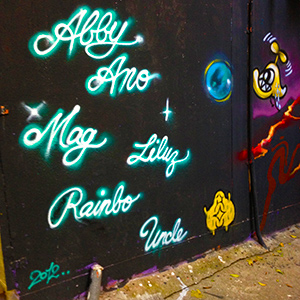 Abby
Ano
Mag
Liluz
Rainbo
Uncle